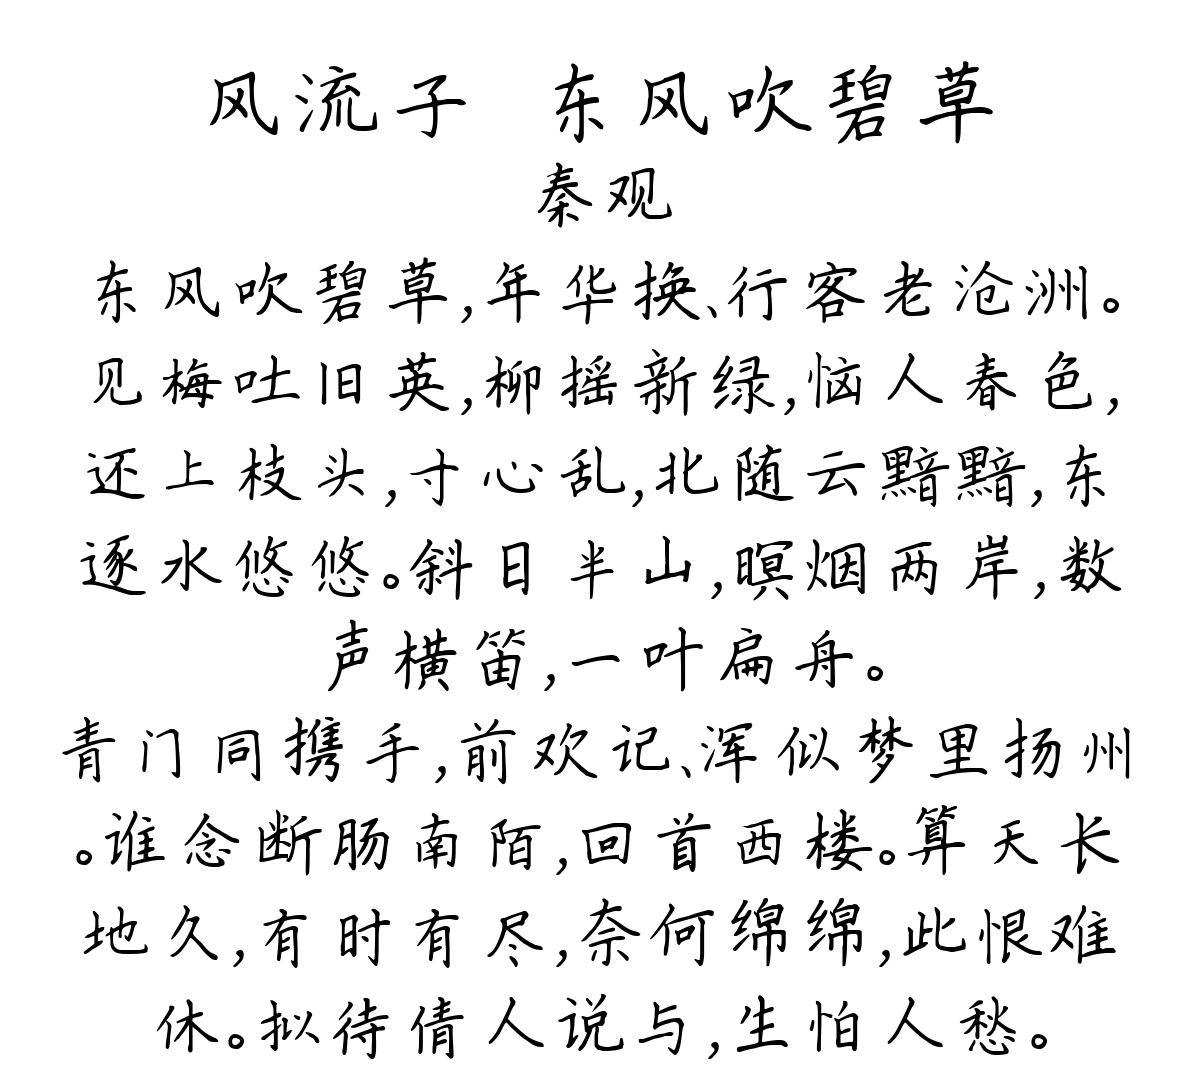 风流子 东风吹碧草
秦观
东风吹碧草,年华换、行客老沧洲。
见梅吐旧英,柳摇新绿,恼人春色,
还上枝头,寸心乱,北随云黯黯,东
逐水悠悠。斜日半山,暝烟两岸,数
声横笛,一叶扁舟。
青门同携手,前欢记、浑似梦里扬州
。谁念断肠南陌,回首西楼。算天长
地久,有时有尽,奈何绵绵,此恨难
休。拟待倩人说与,生怕人愁。